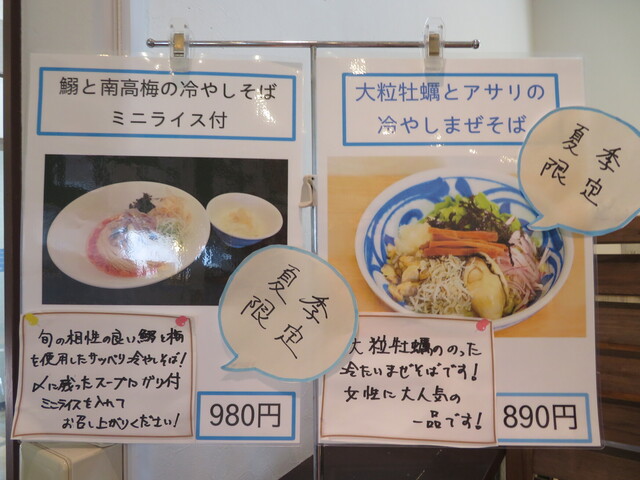 鰯と南高梅の冷やしそば
ミニライス付
夏季
限定
旬の相性の良い、鰯と梅
を使用したサッパリ冷やしそば!
〆に残ったスープにガリ付
ミニライスを入れて
お召し上がりください!
980円
大粒牡蠣とアサリの
冷やしまぜそば
夏季
限定
大粒牡蠣ののった
冷たいまぜそばです!
女性に大人気の
一品です!
890円